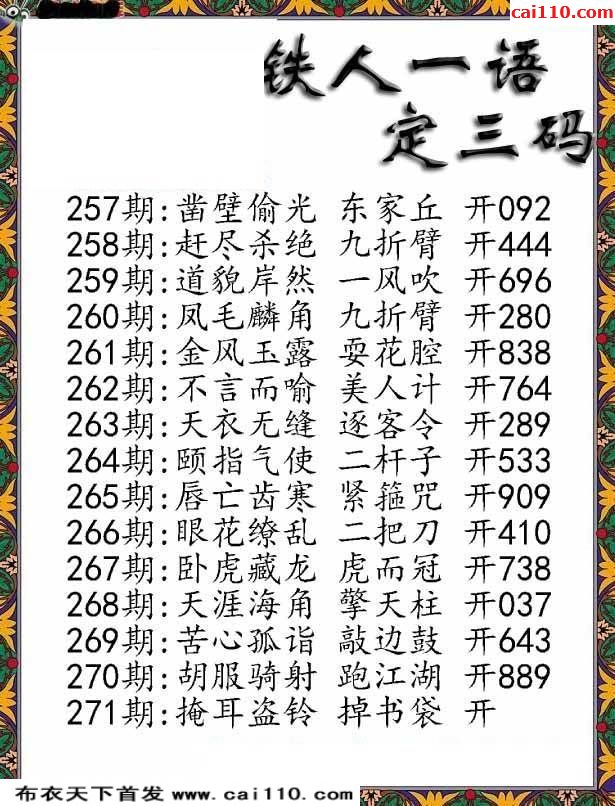 cai110.com
铁人一语
定三码
257期:凿壁偷光 东家丘 开092
258期:赶尽杀绝 九折臂 开444
259期:道貌岸然 一风吹 开696
260期:凤毛麟角 九折臂 开280
261期:金风玉露 耍花腔 开838
262期:不言而喻 美人计 开764
263期:天衣无缝 逐客令 开289
264期:颐指气使 二杆子 开533
265期:唇亡齿寒 紧箍咒 开909
266期:眼花缭乱 二把刀 开410
267期:卧虎藏龙 虎而冠 开738
268期:天涯海角 擎天柱 开037
269期:苦心孤诣 敲边鼓 开643
270期:胡服骑射 跑江湖 开889
271期:掩耳盗铃 掉书袋 开
布衣天下首发 www.cai110.com